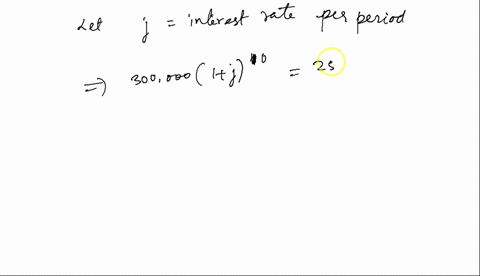 Let j = interest rate per period
⇒ 300,000 (1+j)^10 = 25